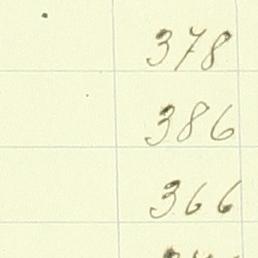 378
386
366